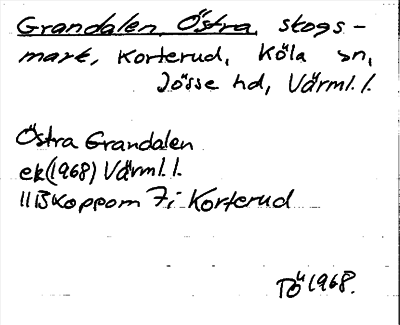 Grandalen, Östra, skogs-
mark, Korterud, Köla sn,
Jösse hd, Värml. l.
Östra Grandalen
ek (1968) Värml. l.
11B Koppom 7i Korterud
TÖ 1968.